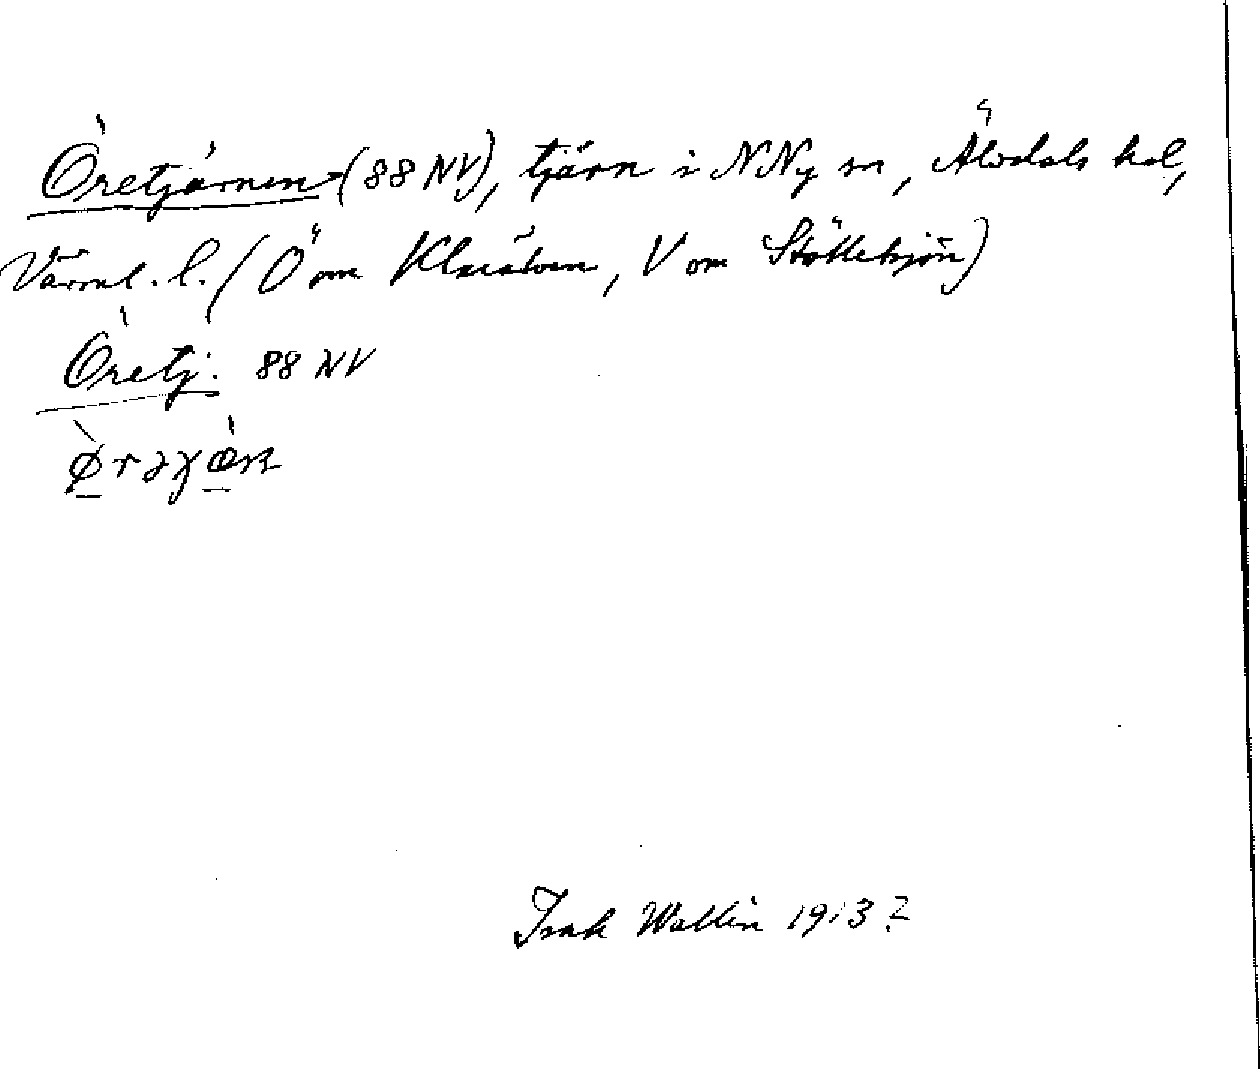 Öretjärnen (88 NV), tjärn i N Ny sn, Älvdals hd,
Värml. l. (Ö om Klarälven, V om Stöttesjön)
Öretj. 88 NV
Isak Wallin 1913?